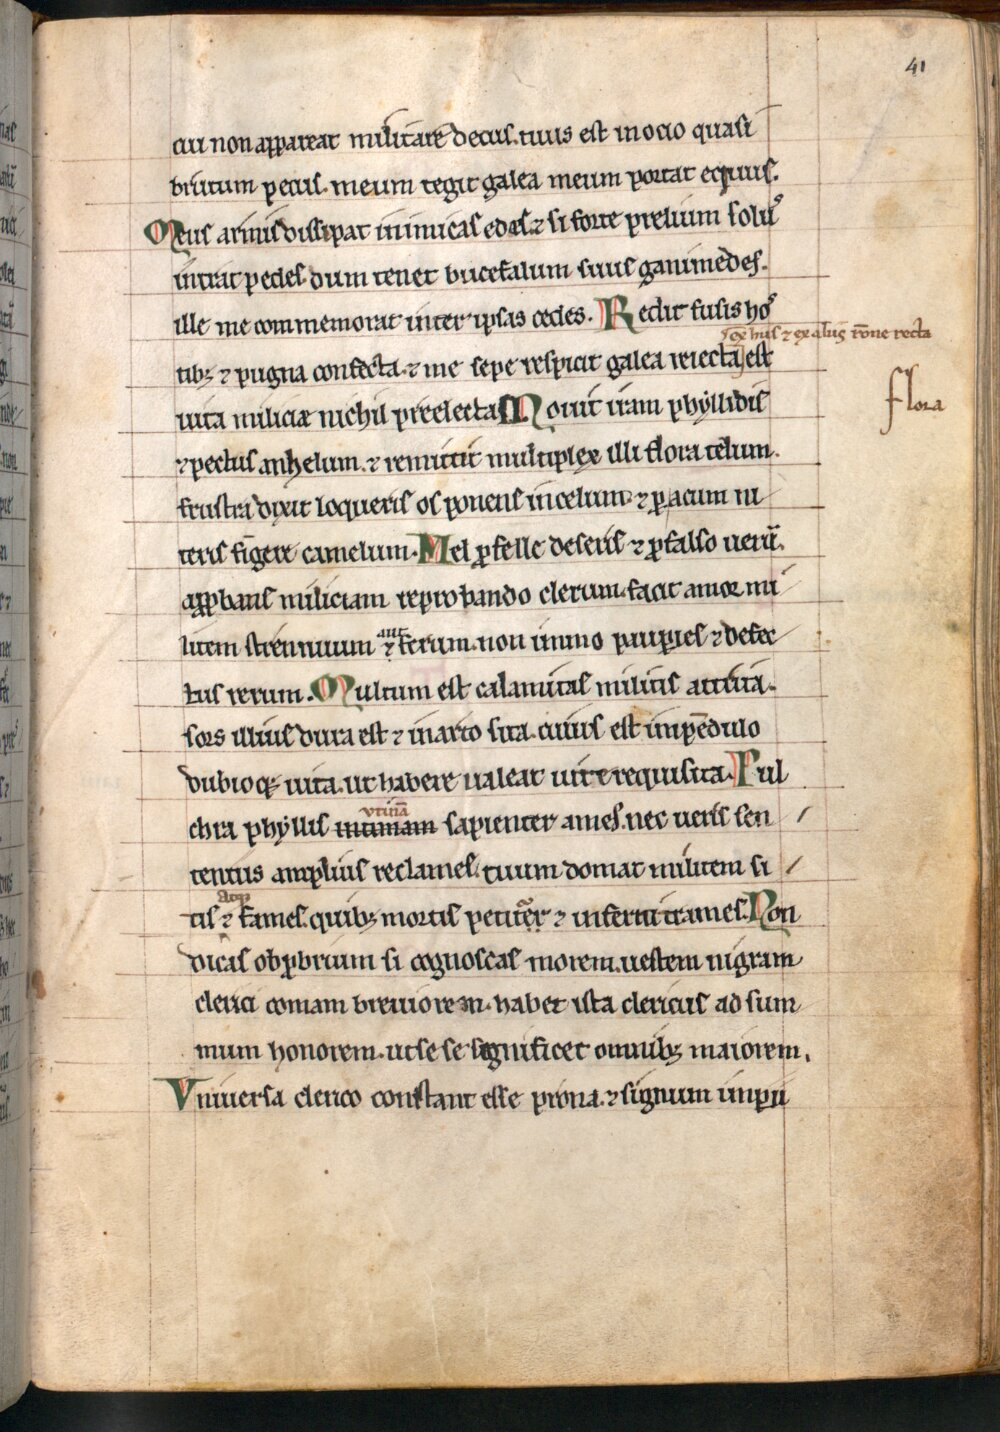 41
cui non appareat militare decus. tuus est in ocio quasi
brutum pecus. meum tegit galea meum portat equus.
Meus armis dissipat inimicas edes. ⁊ si forte prelium solus
intrat pedes. dum tenet bucefalum suus ganimedes.
ille me commemorat inter ipsas cedes. Redit fusis hos
ex hiis ⁊ ex aliis rōne recta
tib; ⁊ pugna confecta. ⁊ me sepe respicit galea reiecta est
uita miliciæ nichil preelecta Nouit iram phyllidis
flora
⁊ pectus anhelum. ⁊ remittit multiplex illi flora telum.
frustra dixit loqueris os ponens in celum. ⁊ ꝑ acum ni
teris figere camelum. Mel ꝓ felle deseris ⁊ ꝓ falso uerū.
apꝓbans miliciam reprobando clerum. facit amor mi
litem strennuum ⁊ ferum. non immo pauꝑies ⁊ defec
aut
tus rerum. Multum est calamitas militis attrita.
sors illius dura est ⁊ in arto sita. cuius est in pēdulo
dubioq; uita. ut habere ualeat uite requisita. Pul
utinā
chra phyllis intimam sapienter ames. nec ueris sen
tentiis amplius reclames. tuum domat militem si
tis ⁊ fames. quib; mortis petitur ⁊ inferni trames. Non
dicas obꝓbrium si cognoscas morem. uestem nigram
clerici comam breuiorem. habet ista clericus ad sum
mum honorem. ut se se significet omnib; maiorem.
Vniuersa clerico constant esse prona. ⁊ signum imꝑii